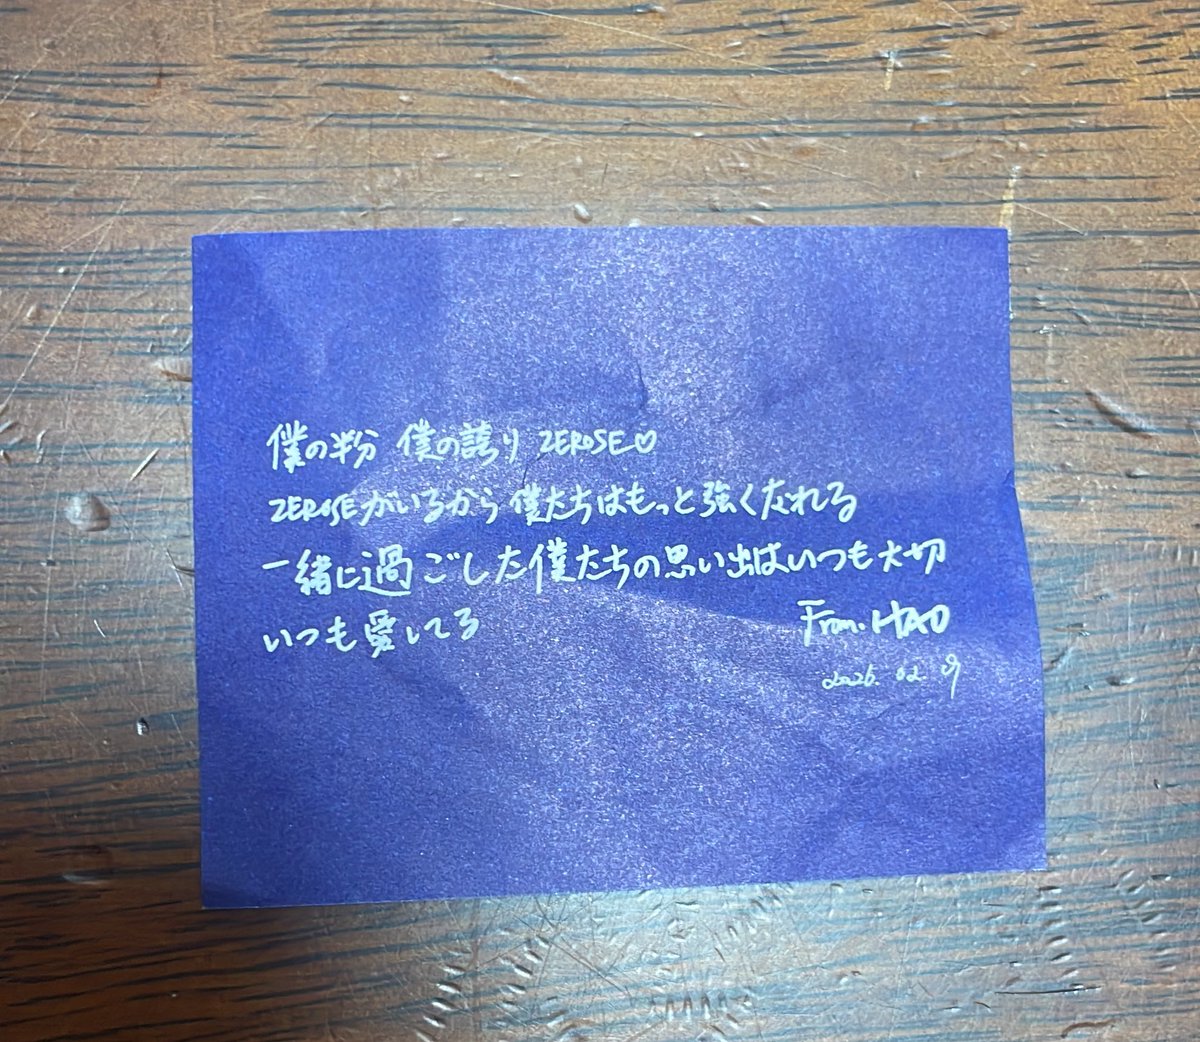 僕の半分 僕の誇り ZEROSE♡
ZEROSEがいるから僕たちはもっと強くなれる
一緒に過ごした僕たちの思い出はいつも大切
いつも愛してる
From. HAO
2026. 02.